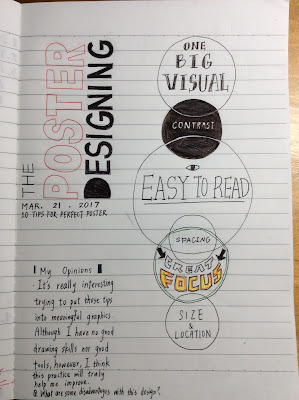 THE
POSTER
DESIGNING
MAR. 21. 2017
10 TIPS FOR PERFECT POSTER
ONE
BIG
VISUAL
CONTRAST
EASY TO READ
SPACING
GREAT
FOCUS
SIZE
&
LOCATION
My Opinions
It's really interesting
trying to put these tips
into meaningful graphics.
Although I have no good
drawing skills nor good
tools, however, I think
this practice will truly
help me improve.
Q. What are some disadvantages with this design?